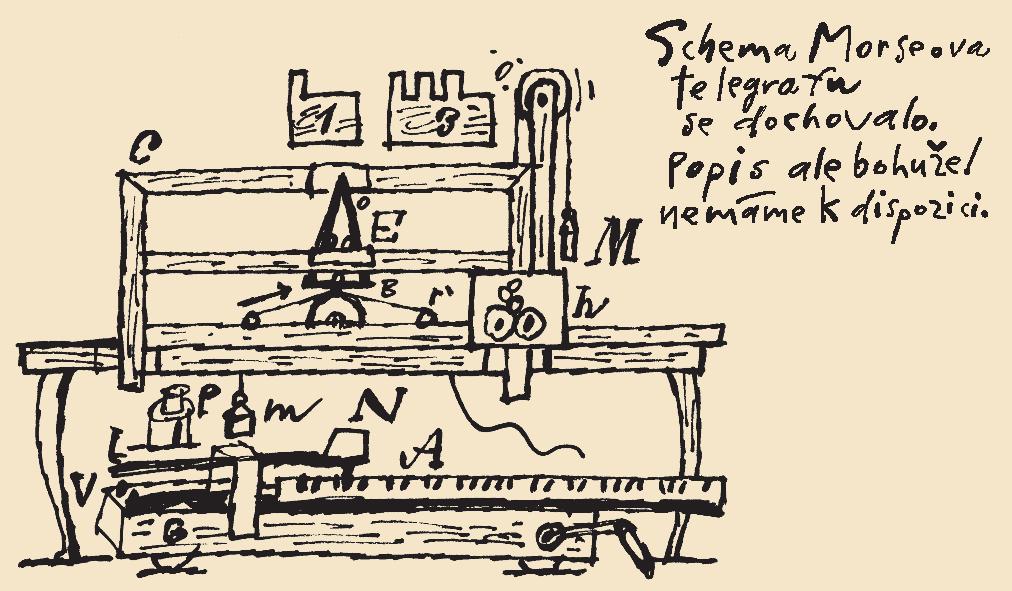 Schema Morseova
telegrafu
se dochovalo.
Popis ale bohužel
nemáme k dispozici.
1
3
C
o
E
M
B
r
h
P
m
N
L
A
V